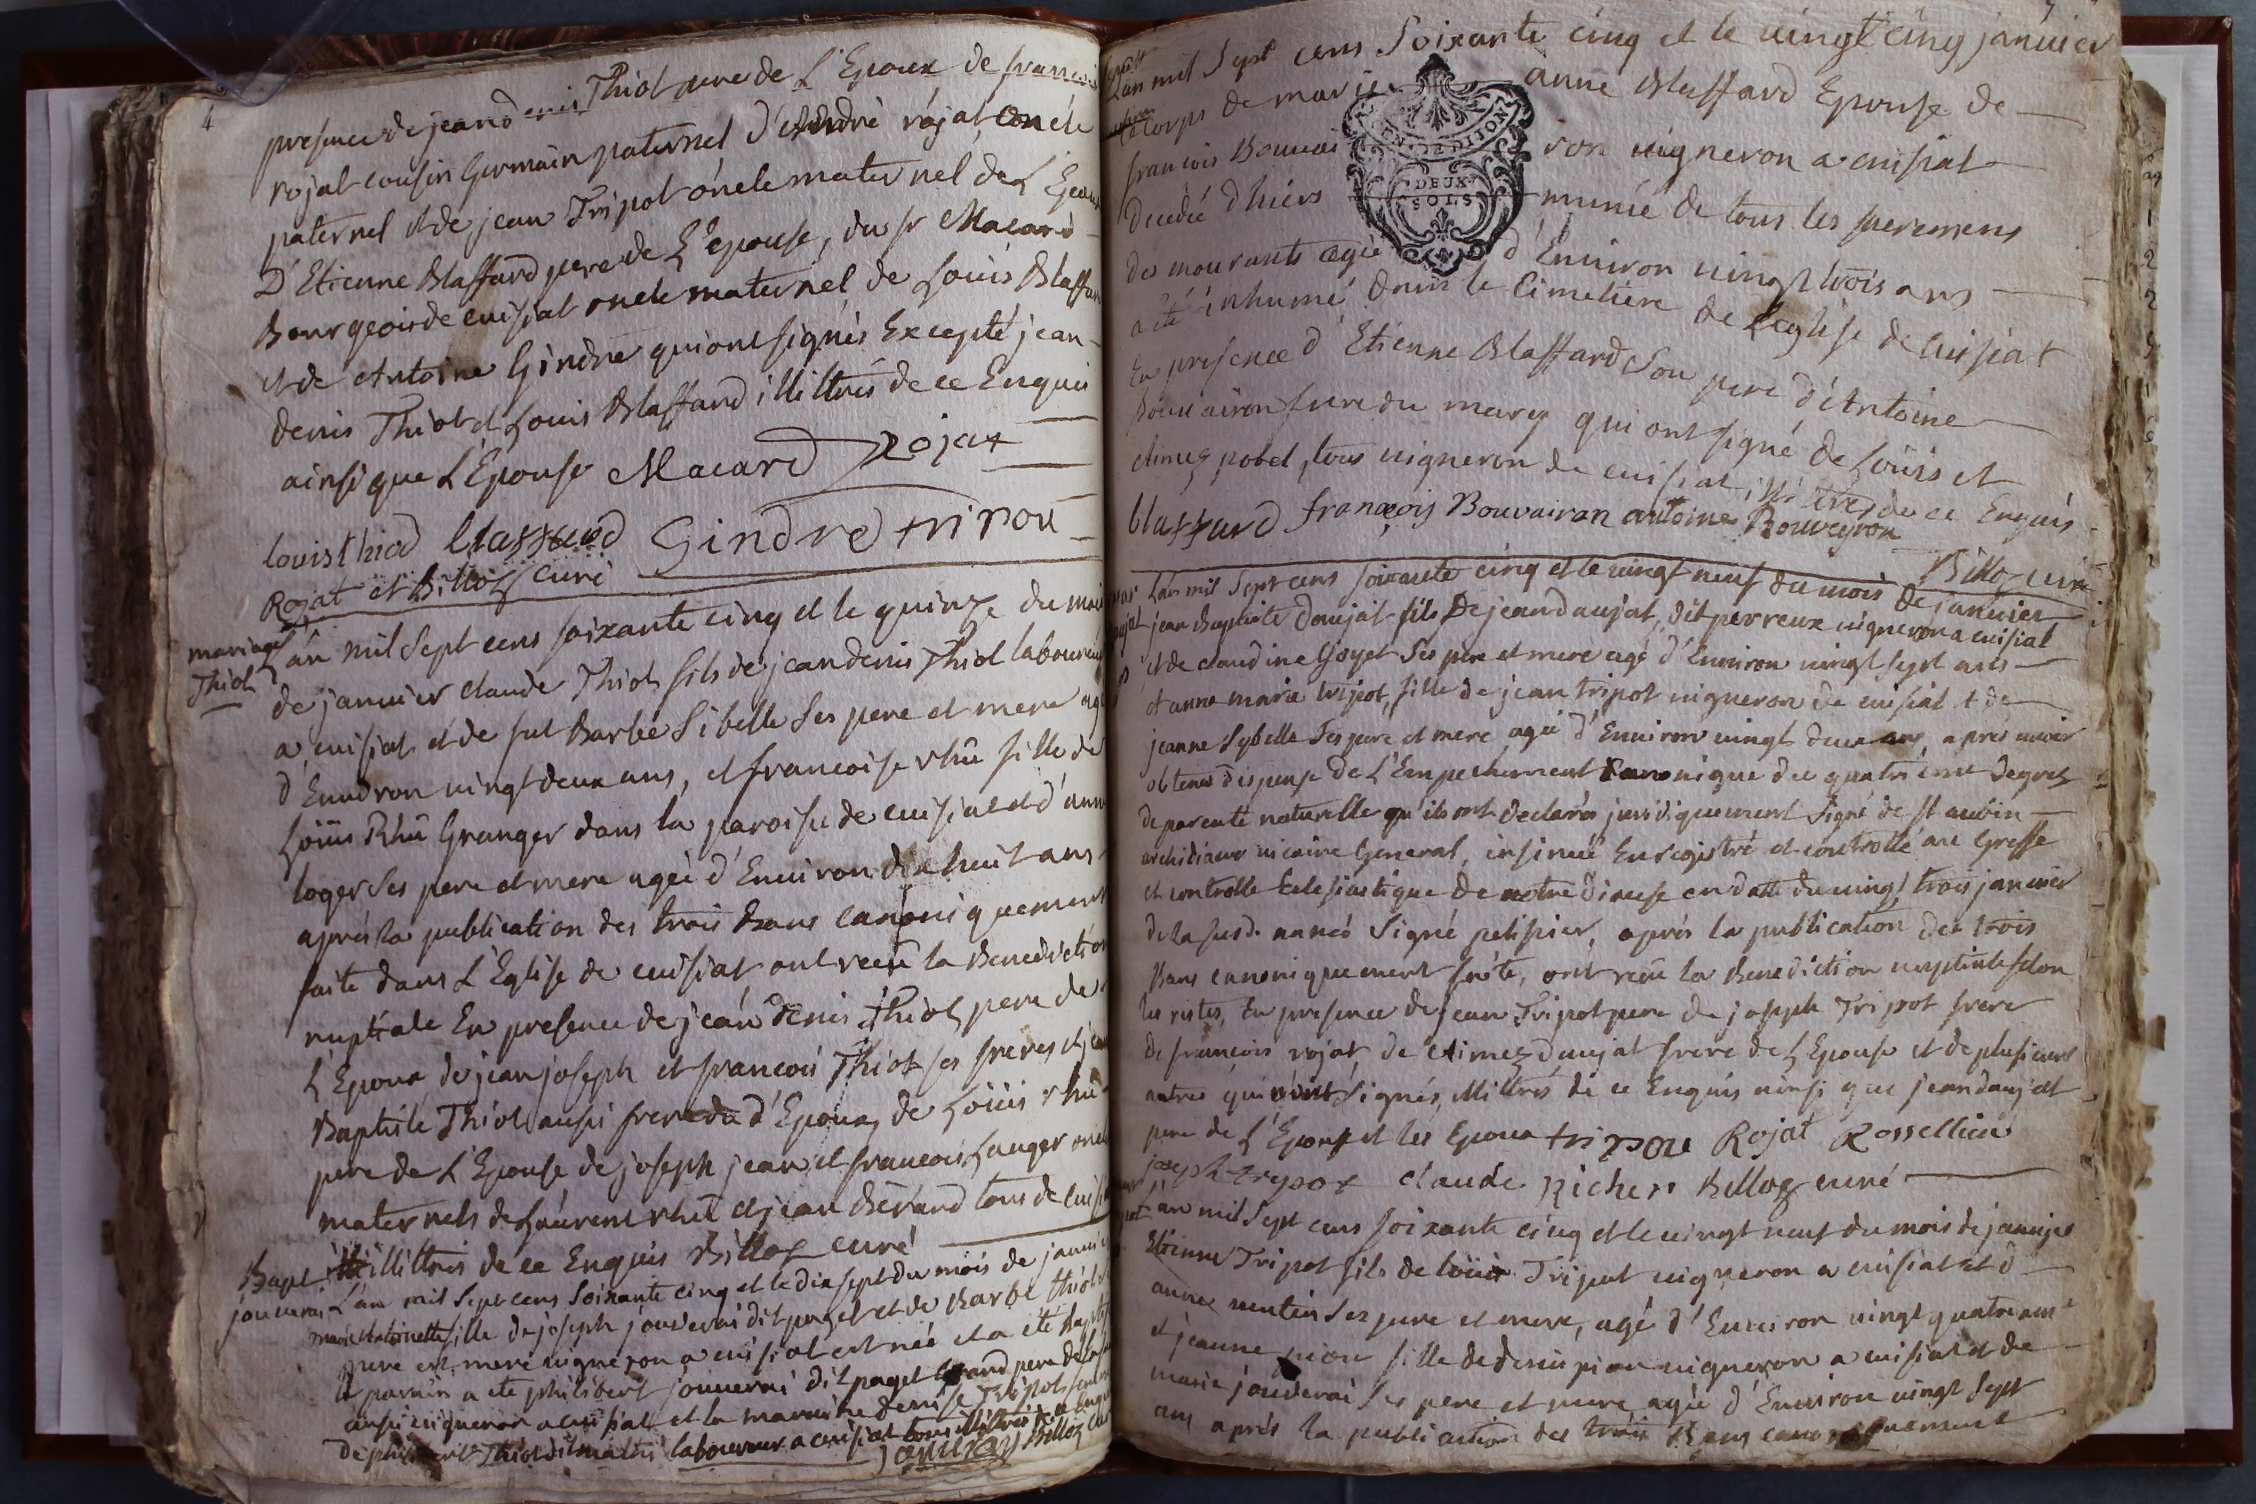 4
presence de jean denis Thiot pere de L'Epoux de francois
rojat cousin Germain paternel d'André rojat oncle
paternel et de jean Tripot oncle maternel de L'Epoux
D'Etienne Blaffard pere de L'epouse, du sr Macard
Bourgeois de cuisiat oncle maternel de Louis Blaffard
et de Antoine Gindre qui ont signés Excepté jean
denis Thiot et Louis Blaffard illittrés de ce Enquis
ainsi que L'Epouse Macard Rojat
louis thiod blaffard Gindre tripou
Rojat et Billoz curé
mariage
Thiot
L'an mil Sept cens soixante cinq et le quinze du mois
de janvier claude Thiot fils de jean denis Thiot laboureur
a cuisiat et de fut Barbe Sibelle Ses pere et mere agé
d'Environ vingt deux ans, et francoise rhû fille de
Loüis Rhû Granger dans la paroisse de cuisiat et d'anne
loger Ses pere et mere agée d'Environ dix huit ans
aprés la publication des trois Bans canoniquement
faite dans L'Eglise de cuisiat ont recû la Benediction
nuptiale En presence de jean denis Thiot pere de
L'Epoux de jean joseph et francois Thiot ses freres et jean
Baptiste Thiot aussi frere de d'Epoux, de Loüis rhû
pere de L'Epouse de joseph jean et francois Lauger oncle
maternels de Laurent rhû et jean Bérard tous de cuisiat
illittrés de ce Enquis Billoz curé
Bapt
jouverai
L'an mil Sept cens Soixante cinq et le dix sept du mois de janvier
marie Antoinette fille de joseph jouverai dit paget et de Barbe thiot
pere et mere vigneron a cuisiat est née et a été Baptisée
le parain a ete philibert jouverai dit paget Grand pere de la
aussi vigneron a cuisiat et la maraine denise Tripot femme
de philibert Thiot dit mathi laboureur a cuisiat tous illittrés de ce Enquis
jouveray Billoz curé
L'an mil Sept cens Soixante cinq et le vingt cinq janvier
le Corps de marie anne Blaffard Epouse de
francois Bouvairon vigneron a cuisiat
decedée d'hiers munie de tous les sacremens
des mourants agée d'Environ vingt trois ans
a été inhumé dans le Cimetiére de L'eglise de Cuisiat
En presence d'Etienne Blaffard Son pere d'Antoine
Bouvairon frere du mary qui ont signé de Loüis et
Aimez pobel, tous vigneron de cuisiat, illittrés de ce Enquis
blaffard françois Bouvairan antoine Bouveyron
Billoz curé
DEUX
SOLS
L'an mil Sept cens soixante cinq et le vingt neuf du mois de janvier
jean Baptiste daujat fils de jean daujat, dit perreux vigneron a cuisiat
et de claudine Goyet Ses pere et mere agé d'Environ vingt sept ans
et anne marie tripot, fille de jean tripot vigneron de cuisiat et de
jeanne Sybelle Ses pere et mere agée d'Environ vingt deux ans, apres avoir
obtenus dispense de L'Empechement Canonique du quatrieme degrez
de parenté naturelle qu'ils ont declarés juridiquement Signé de st aubin
archidiacre vicaire General, insinué Enregistré et controllé au Greffe
et controlle Eclesiastique de notre Diocese en datte du vingt trois janvier
de la susd. anneé Signé pelissier, aprés la publication des trois
Bans canoniquement faite, ont recû la Benediction nuptiale selon
les ristes, En presence de jean Tripot pere de joseph Tripot frere
de francois rojat, de Aimez daujat frere de L'Epouse et de plusieurs
autres qui n'ont Signés, illittrés de ce Enquis ainsi que jean daujat
pere de L'Epoux et les Epoux tripou Rojat Rossellion
joseph trypot claude Richer Billoz curé
L'an mil Sept cens soixante cinq et le vingt neuf du mois de janvier
Etienne Tripot fils de loüis Tripot vigneron a cuisiat et d'
annez mentin Ses pere et mere, agé d'Environ vingt quatre ans
et jeanne pion fille de denis pion vigneron a cuisiat et de
marie jouverai Ses pere et mere agée d'Environ vingt Sept
ans aprés la publication des trois Bans canoniquement